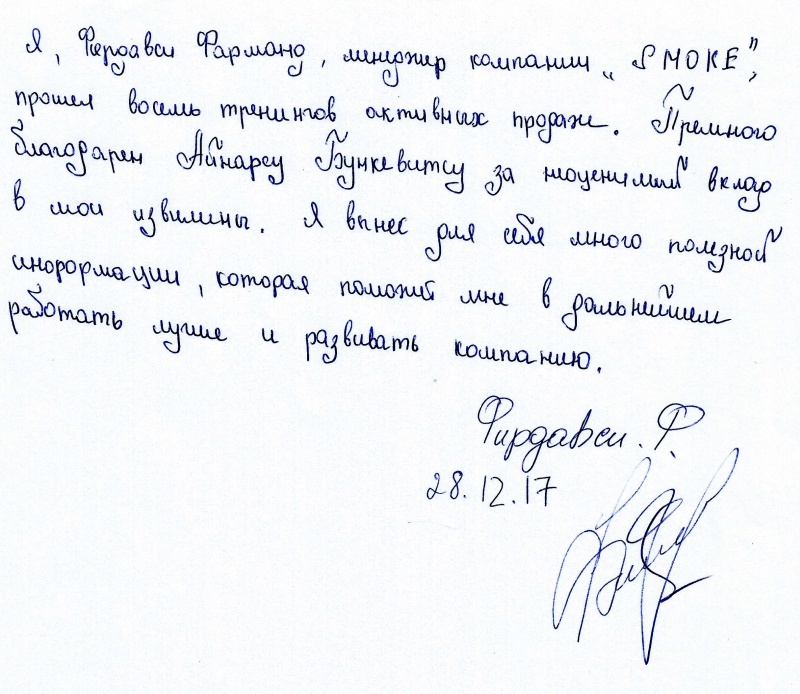 Я, Фирдавси Фарманд, менеджер компании „SMOKE”,
прошел восемь тренингов активных продаж. Премного
благодарен Айнарсу Бункевитсу за неоценимый вклад
в мои извилины. Я вынес для себя много полезной
информации, которая поможет мне в дальнейшем
работать лучше и развивать компанию.
Фирдавси. Ф.
28.12.17